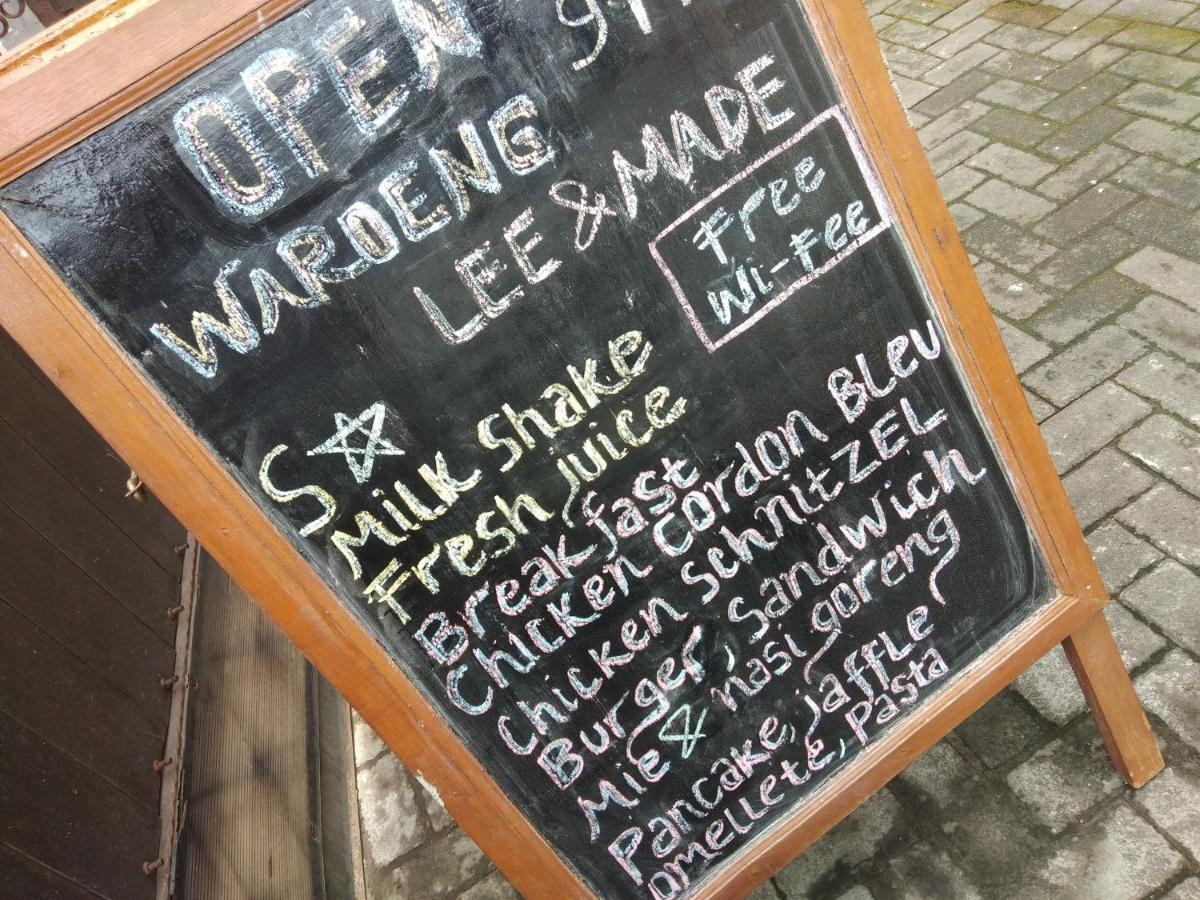 OPEN
WAROENG
LEE & MADE
Free
Wi-Fee
S
MiLK Shake
Fresh juice
Breakfast
Chicken Cordon BLeu
Chicken SchnitZEL
Burger, Sandwich
Mie & nasi goreng
Pancake, jaffLe
omeLLete, pasta